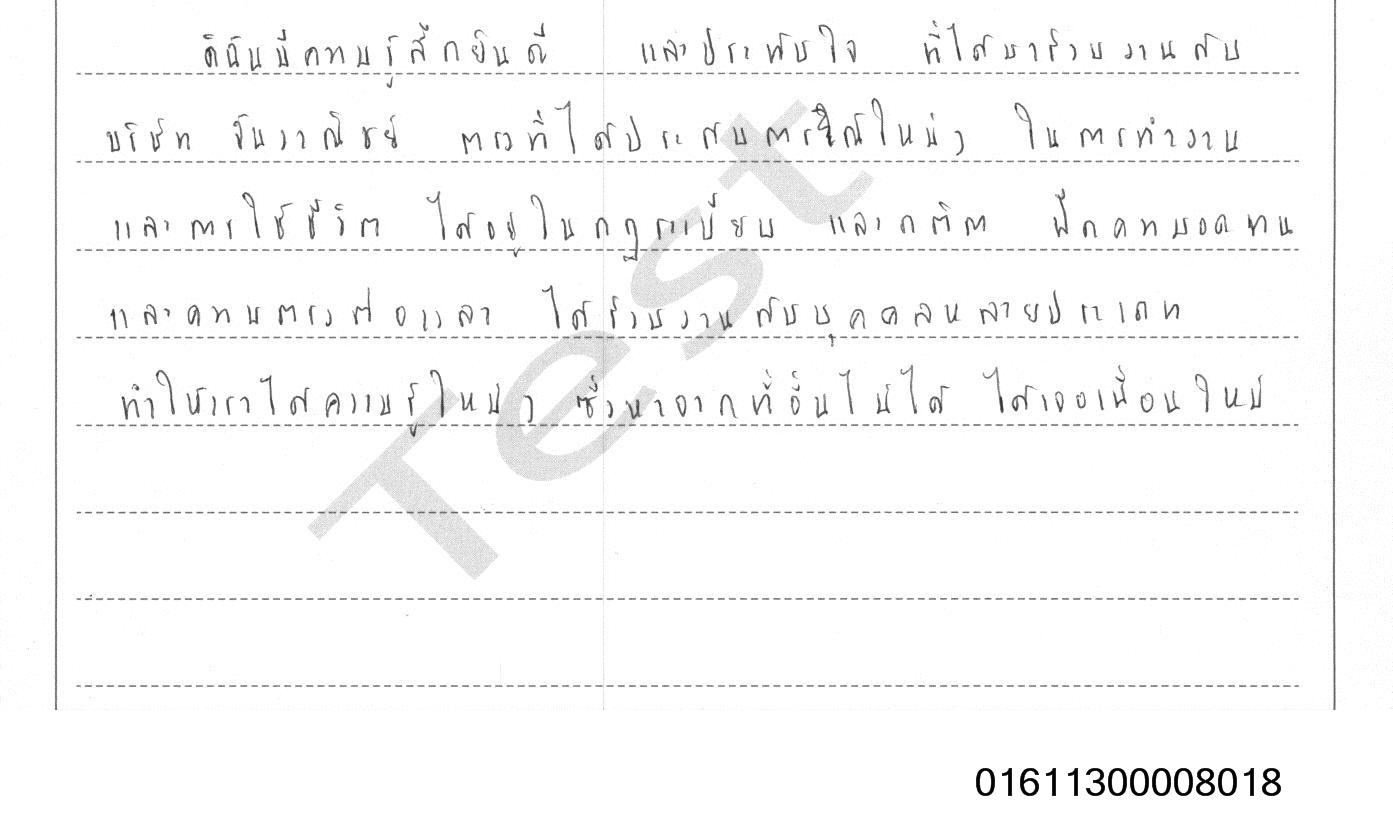 ดิฉันมีความรู้สึกยินดี และประทับใจ ที่ได้มาร่วมงานกับ
บริษัท จันวาณิชย์ ตรงที่ได้ประสบการณ์ใหม่ๆ ในการทำงาน
และการใช้ชีวิต ได้อยู่ในกฎระเบียบ และกติกา ฝึกความอดทน
และความตรงต่อเวลา ได้ร่วมงานกับบุคคลหลายประเภท
ทำให้เราได้ความรู้ใหม่ๆ ซึ่งหาจากที่อื่นไม่ได้ ได้เจอเพื่อนใหม่
Test
01611300008018